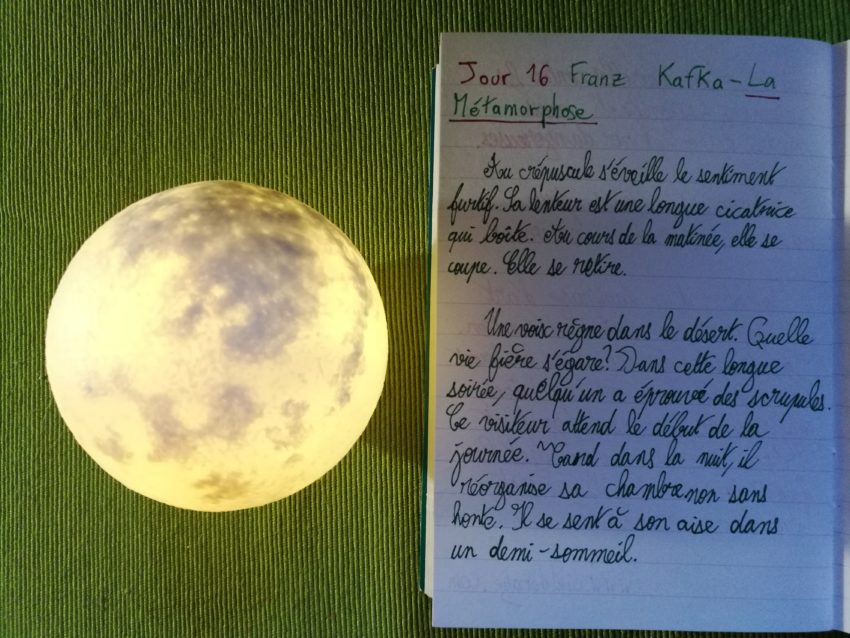 Jour 16 Franz Kafka – La
Métamorphose
Au crépuscule s'éveille le sentiment
furtif. Sa lenteur est une longue cicatrice
qui boîte. Au cours de la matinée, elle se
coupe. Elle se retire.
Une voix règne dans le désert. Quelle
vie fière s'égare? Dans cette longue
soirée, quelqu'un a éprouvé des scrupules.
Ce visiteur attend le début de la
journée. Tard dans la nuit, il
réorganise sa chambre non sans
honte. Il se sent à son aise dans
un demi-sommeil.